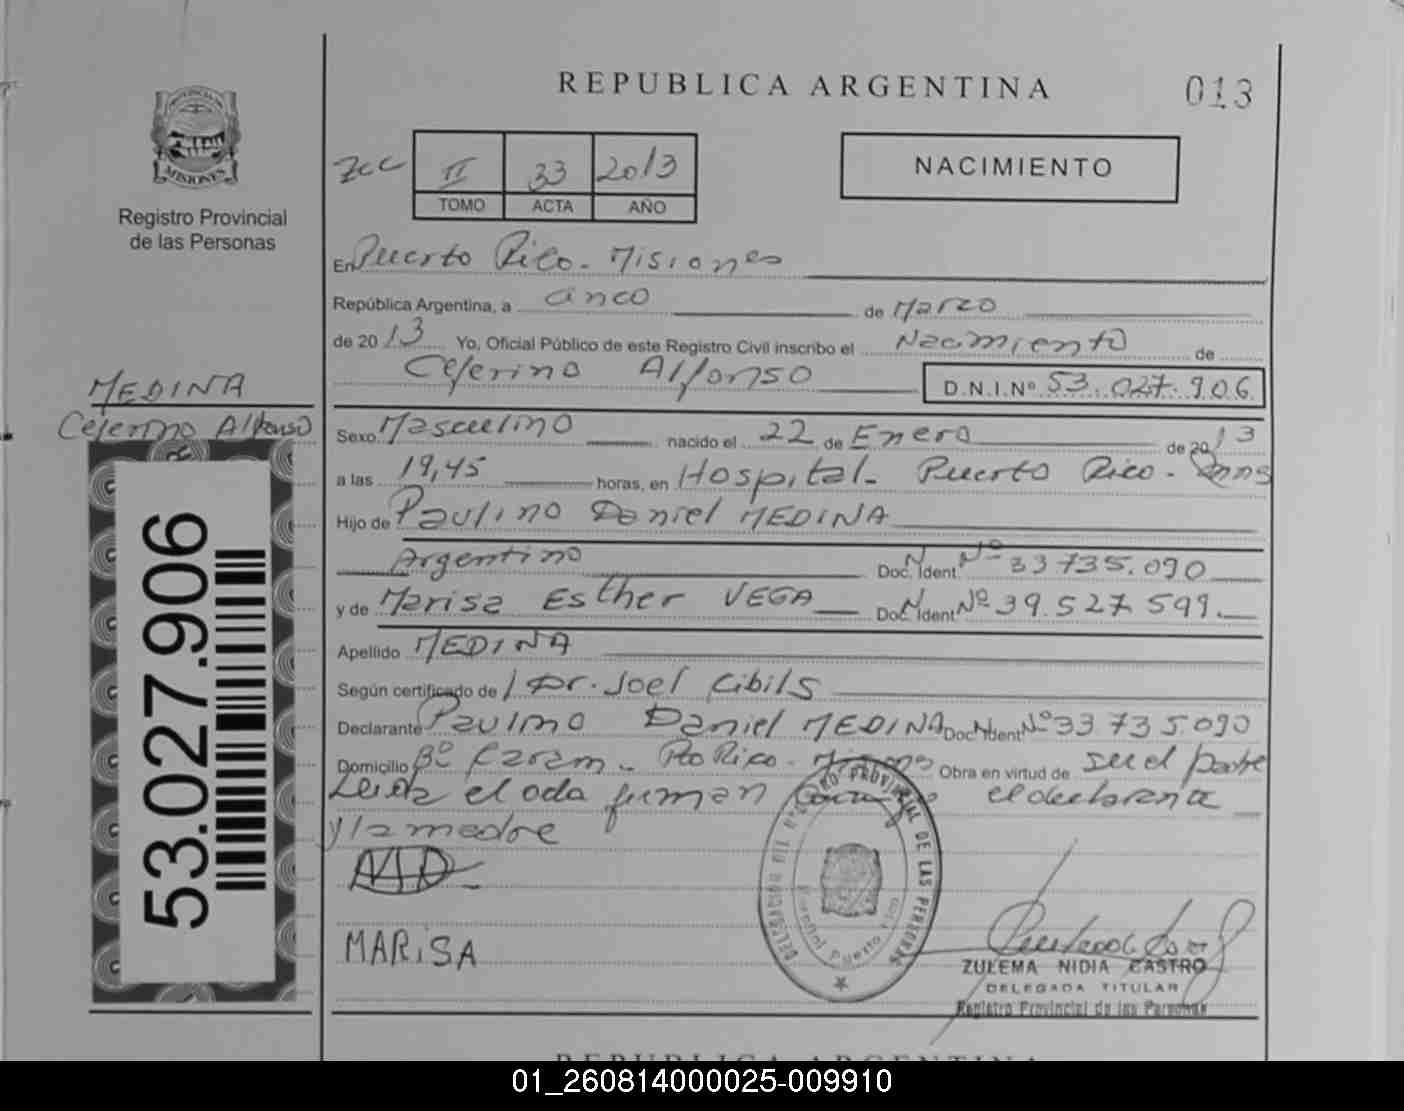 REPUBLICA ARGENTINA
013
PROVINCIA DE
MISIONES
Registro Provincial
de las Personas
II 33 2013
TOMO ACTA AÑO
NACIMIENTO
En Puerto Rico - Misiones
República Argentina, a cinco de Marzo
de 2013 Yo, Oficial Público de este Registro Civil inscribo el Nacimiento de
Ceferino Alfonso D.N.I.Nº 53.027.906
MEDINA
Ceferino Alfonso
Sexo Masculino nacido el 22 de Enero de 2013
a las 19,45 horas, en Hospital - Puerto Rico -
Hijo de Paulino Daniel MEDINA
Argentino Doc. N. Ident. Nº 33 735.090
y de Marisa Esther VEGA Doc. N. Ident Nº 39.527 599.
Apellido MEDINA
Según certificado de Dr. Joel Cibils
Declarante Paulino Daniel MEDINA Doc. N. Ident Nº 33 735.090
Domicilio Bº - Pto Rico - Obra en virtud de ser el padre
el acta firman el declarante
y la madre
MARISA
53.027.906
REGISTRO PROVINCIAL DE LAS PERSONAS
Puerto Rico
ZULEMA NIDIA CASTRO
DELEGADA TITULAR
Registro Provincial de las Personas
REPUBLICA ARGENTINA
01_260814000025-009910